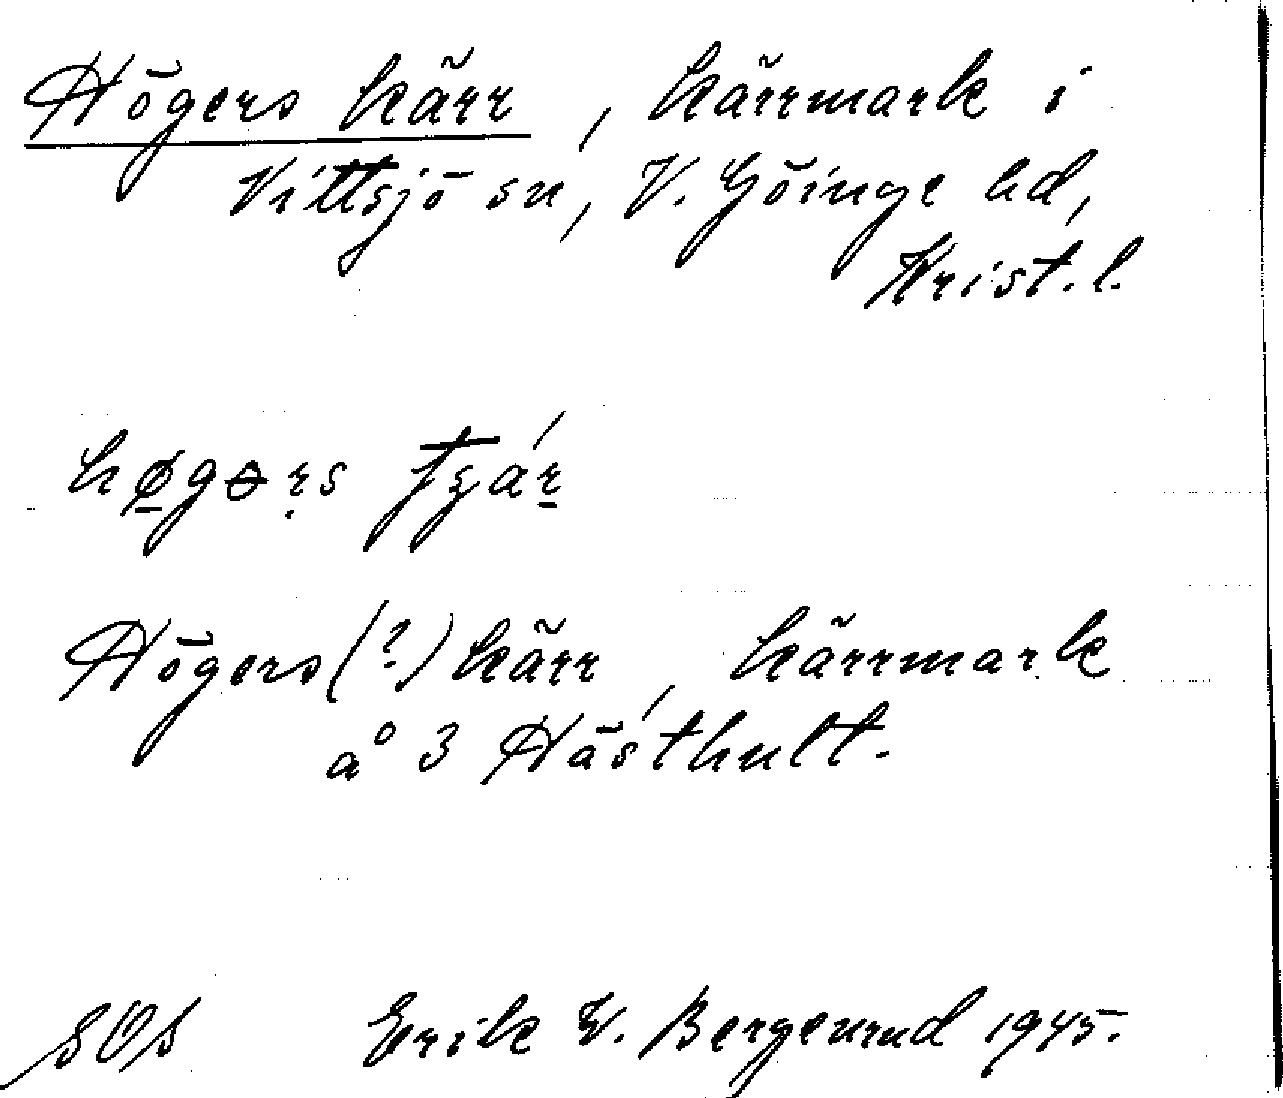 Högers kärr, kärrmark i
Vittsjö sn, V. Göinge hd,
Krist. l.
Högers (?) kärr, kärrmark
å 3 Hästhult.
SOS Erik W. Bergenrud 1945.